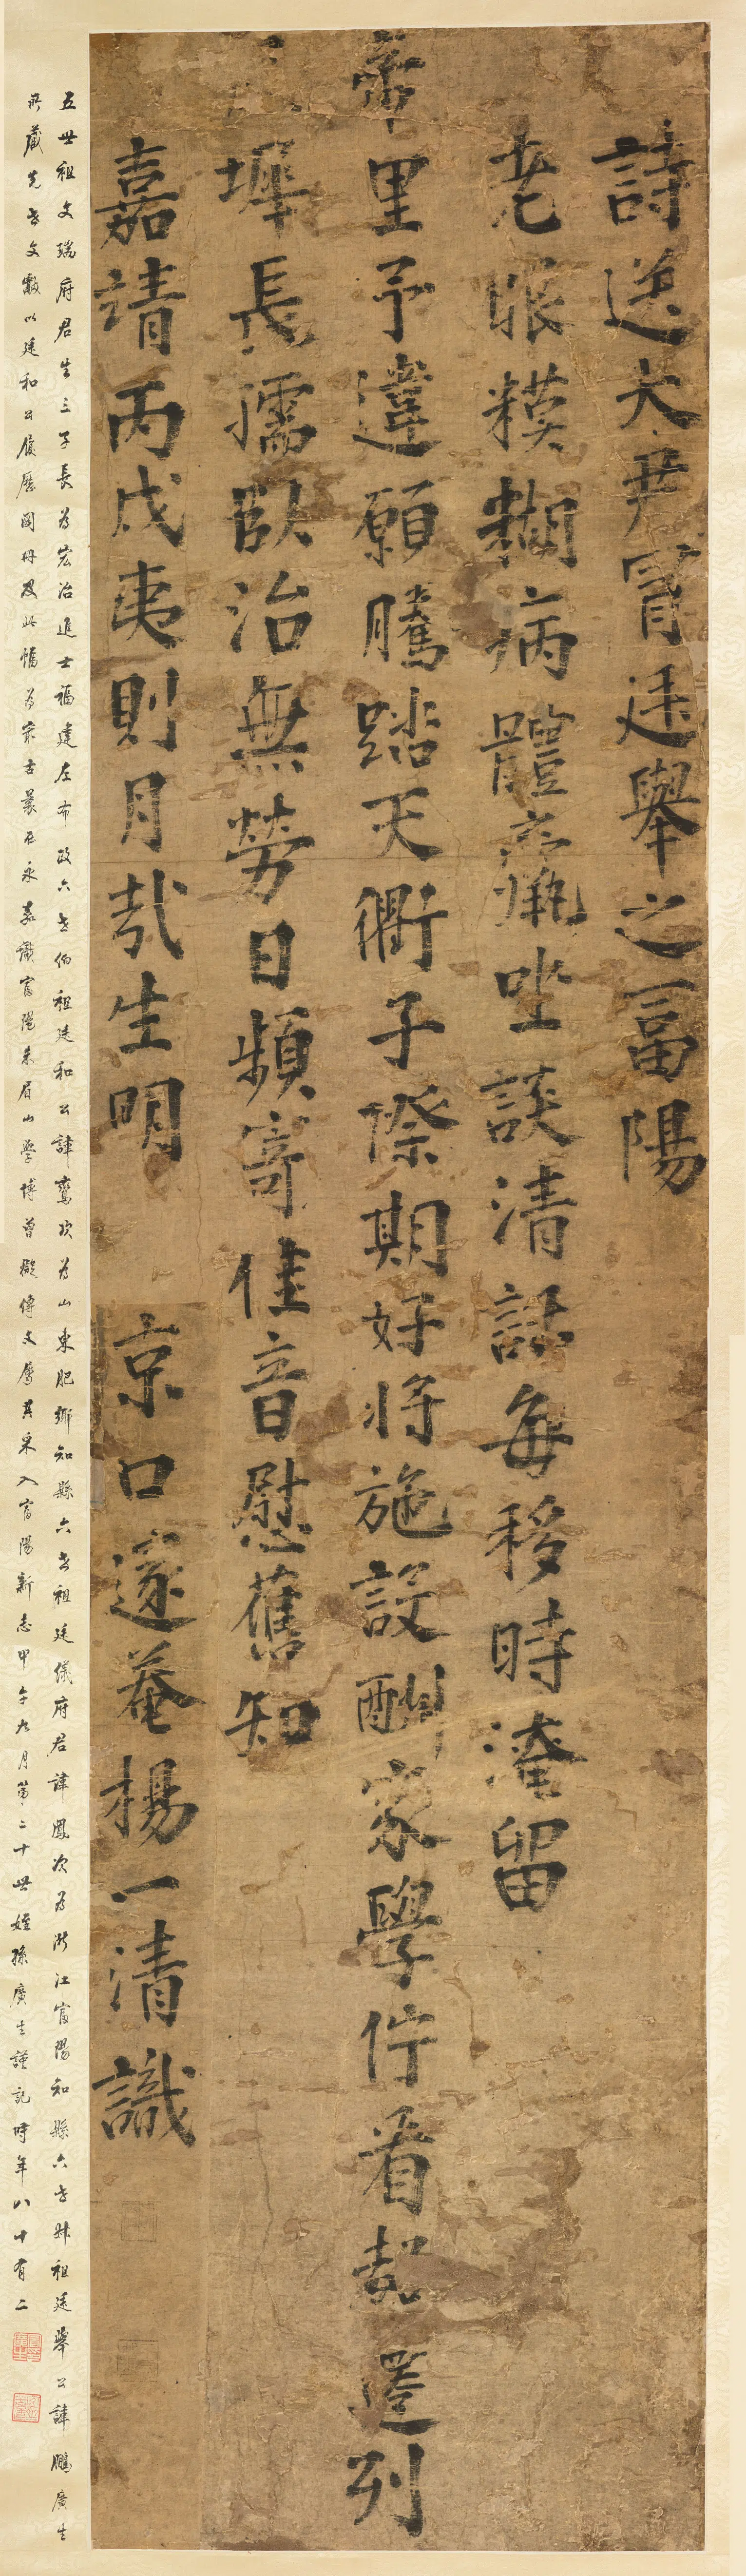 詩送大尹胥廷舉之富陽
老眼糢糊病體羸坐談清話每移時淹留
帝里予違願騰踏天衢子際期好將施設酬家學佇看超遷列
墀長孺臥治無勞日頻寄佳音慰舊知
嘉靖丙戌夷則月哉生明 京口邃菴楊一清識
五世祖文瑞府君生三子長為宏治進士福建左布政六世伯祖廷和公諱鸞次為山東肥鄉知縣六世祖廷儀府君諱鳳次為浙江富陽知縣六世叔祖廷舉公諱鵬廣生
所藏先世文獻以廷和公履歷圖冊及此幅為最古曩在永嘉識富陽朱眉山學博曾擬傳文屬其采入富陽新志甲午九月第二十世姪孫廣生謹記時年八十有二